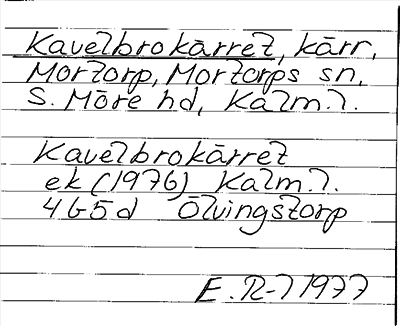 Kavelbrokärret, kärr,
Mortorp, Mortorps sn,
S. Möre hd, Kalm. l.
Kavelbrokärret
ek (1976) Kalm. l.
4G5d Ölvingstorp
E. R-l 1977